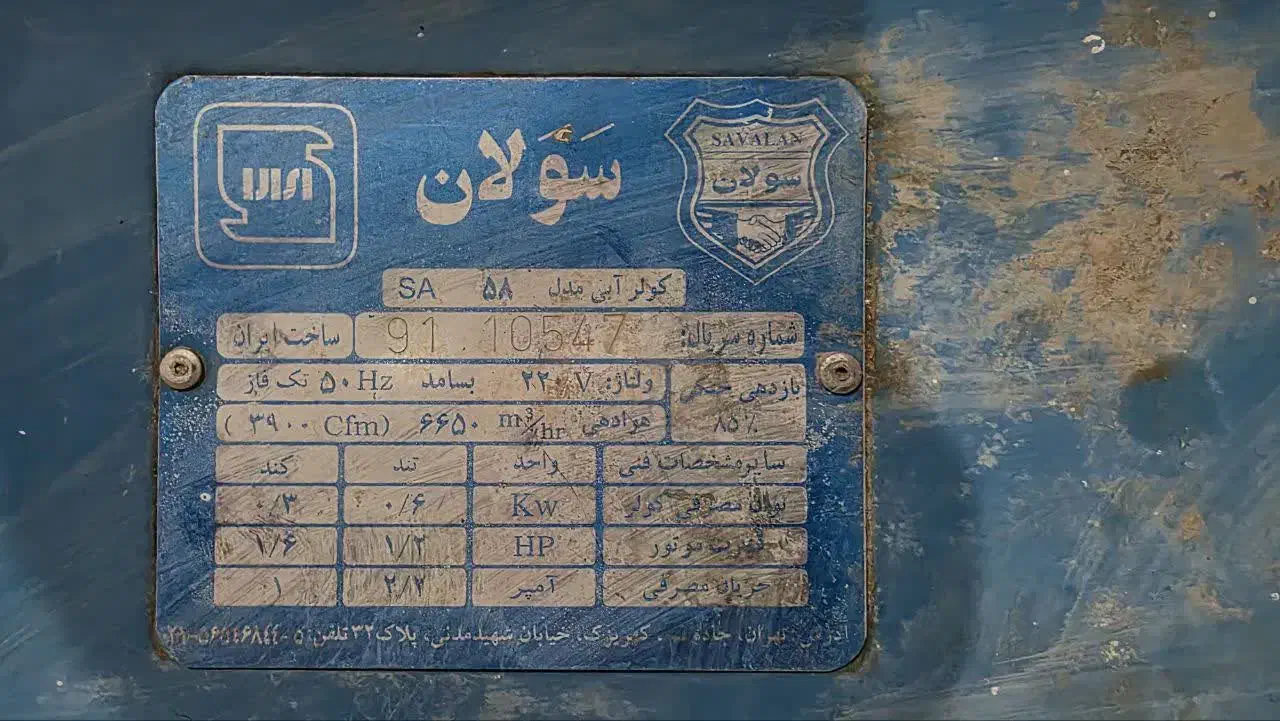 سَوَلان
SAVALAN
سولان
کولر آبی مدل ۵۸ SA
شماره سریال: 91.10547 ساخت ایران
ولتاژ: ۲۲۰ V بسامد ۵۰ Hz تک فاز
بازدهی خنکی ۸۵٪
هوادهی ۶۶۵۰ m³/hr (۳۹۰۰ Cfm)
سایر مشخصات فنی واحد تند کند
توان مصرفی کولر Kw ۰/۶ ۰/۳
قدرت موتور HP ۱/۲ ۱/۶
جریان مصرفی آمپر ۲/۲ ۱
آدرس: تهران، جاده قم، کهریزک، خیابان شهید مدنی، پلاک ۳۲ تلفن: